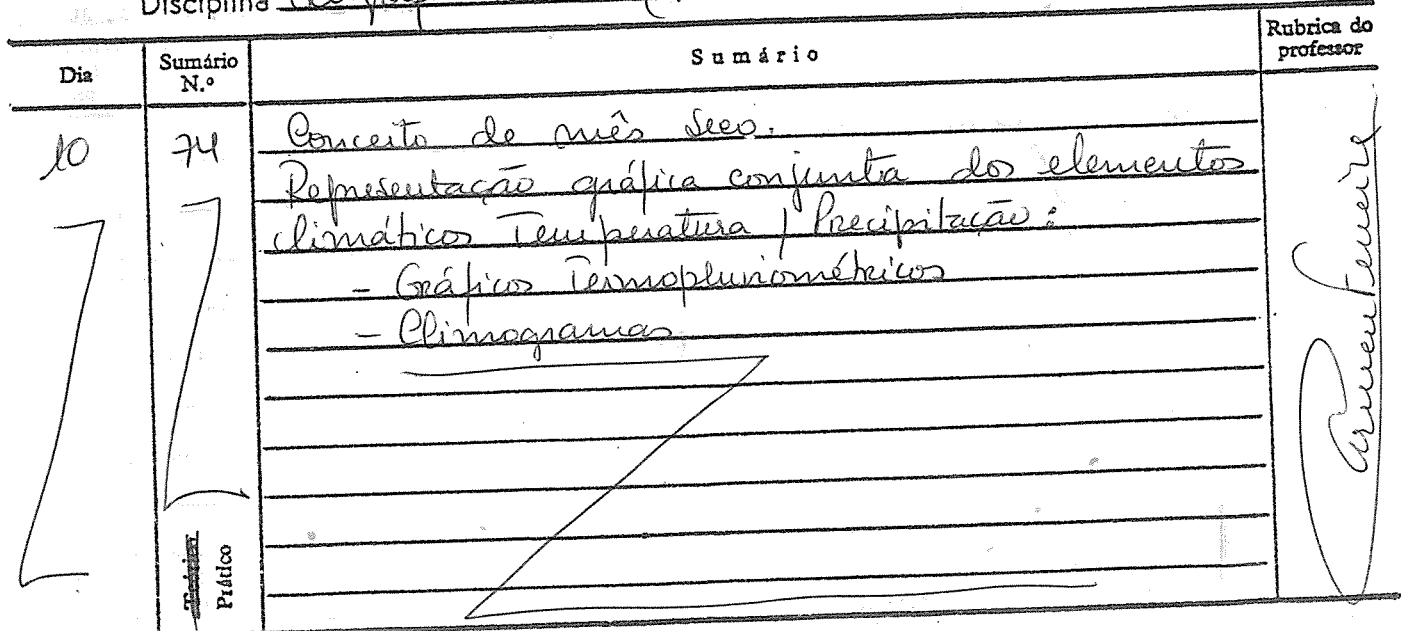 Disciplina
Dia
Sumário N.º
Sumário
Rubrica do professor
10
74
Conceito de mês seco.
Representação gráfica conjunta dos elementos
climáticos Temperatura / Precipitação:
- Gráficos Termopluviométricos
- Climogramas
Prático